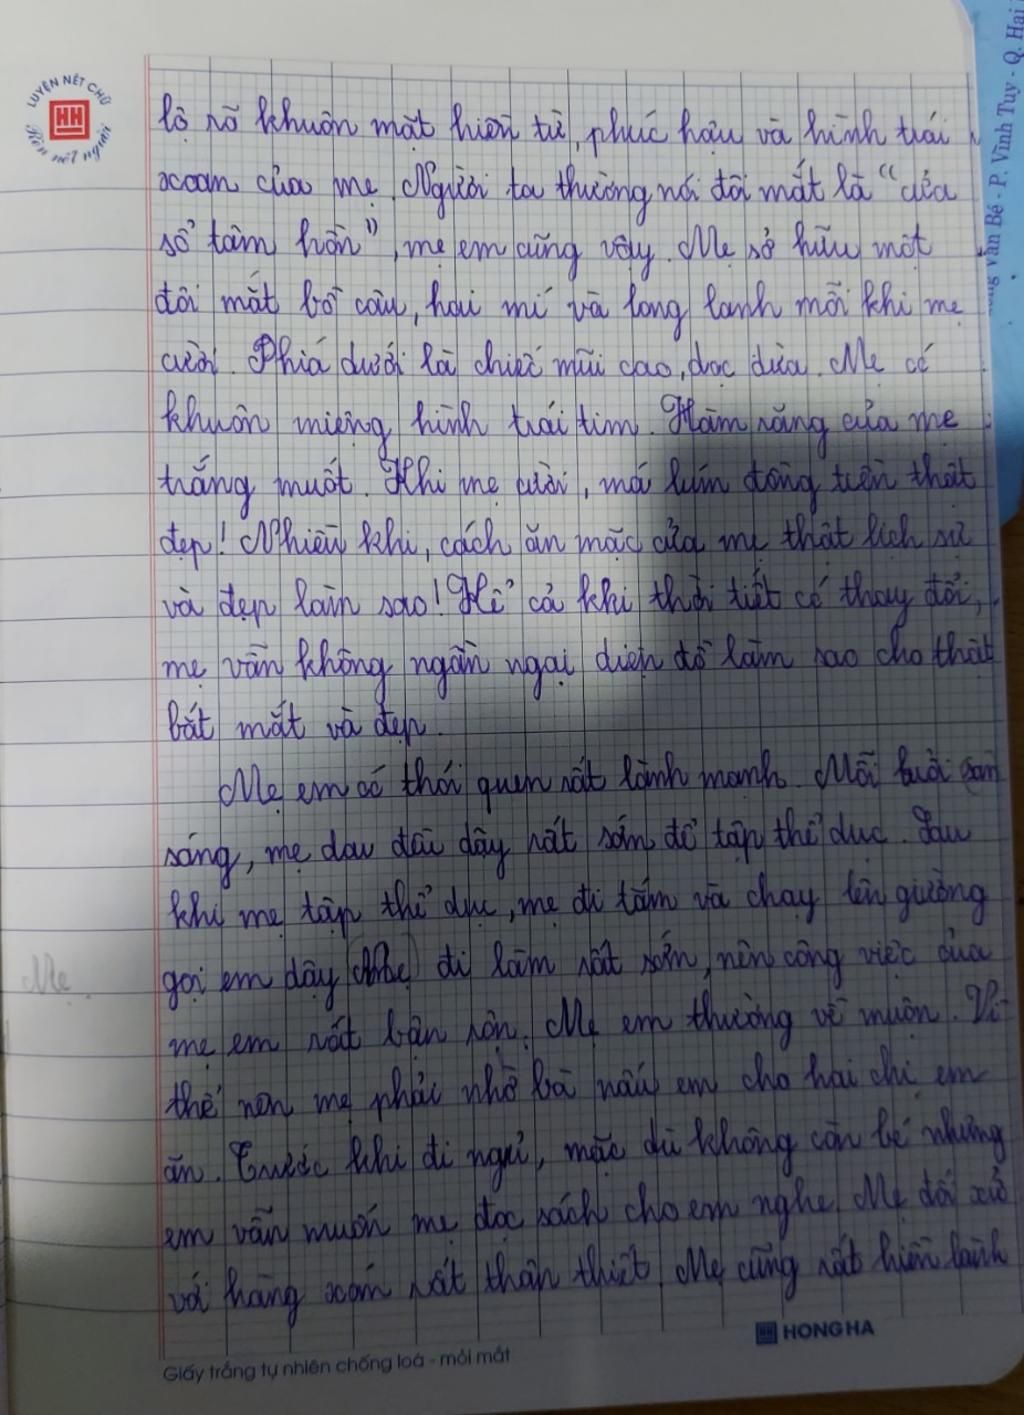 LUYỆN NÉT CHỮ
HH
Rèn nết người
lộ rõ khuôn mặt hiền từ, phúc hậu và hình trái
xoan của mẹ. Người ta thường nói đôi mắt là "cửa
sổ tâm hồn", mẹ em cũng vậy. Mẹ sở hữu một
đôi mắt bồ câu, hai mí và long lanh mỗi khi mẹ
cười. Phía dưới là chiếc mũi cao, dọc dừa. Mẹ có
khuôn miệng hình trái tim. Hàm răng của mẹ
trắng muốt. Khi mẹ cười, má lúm đồng tiền thật
đẹp! Nhiều khi, cách ăn mặc của mẹ thật lịch sự
và đẹp làm sao! Kể cả khi thời tiết có thay đổi,
mẹ vẫn không ngần ngại diện đồ làm sao cho thật
bắt mắt và đẹp.
Mẹ em có thói quen rất lành mạnh. Mỗi buổi
sáng, mẹ đau đầu dậy rất sớm để tập thể dục. Sau
khi mẹ tập thể dục, mẹ đi tắm và chạy lên giường
gọi em dậy (Mẹ) đi làm rất sớm, nên công việc của
Mẹ
mẹ em rất bận rộn. Mẹ em thường về muộn. Vì
thế nên mẹ phải nhờ bà nấu em cho hai chị em
ăn. Trước khi đi ngủ, mặc dù không còn bé nhưng
em vẫn muốn mẹ đọc sách cho em nghe. Mẹ đối xử
với hàng xóm rất thân thiết. Mẹ cũng rất hiền lành
HONG HA
Giấy trắng tự nhiên chống loá - mỏi mắt
Văn Bé - P. Vĩnh Tuy - Q. Hai